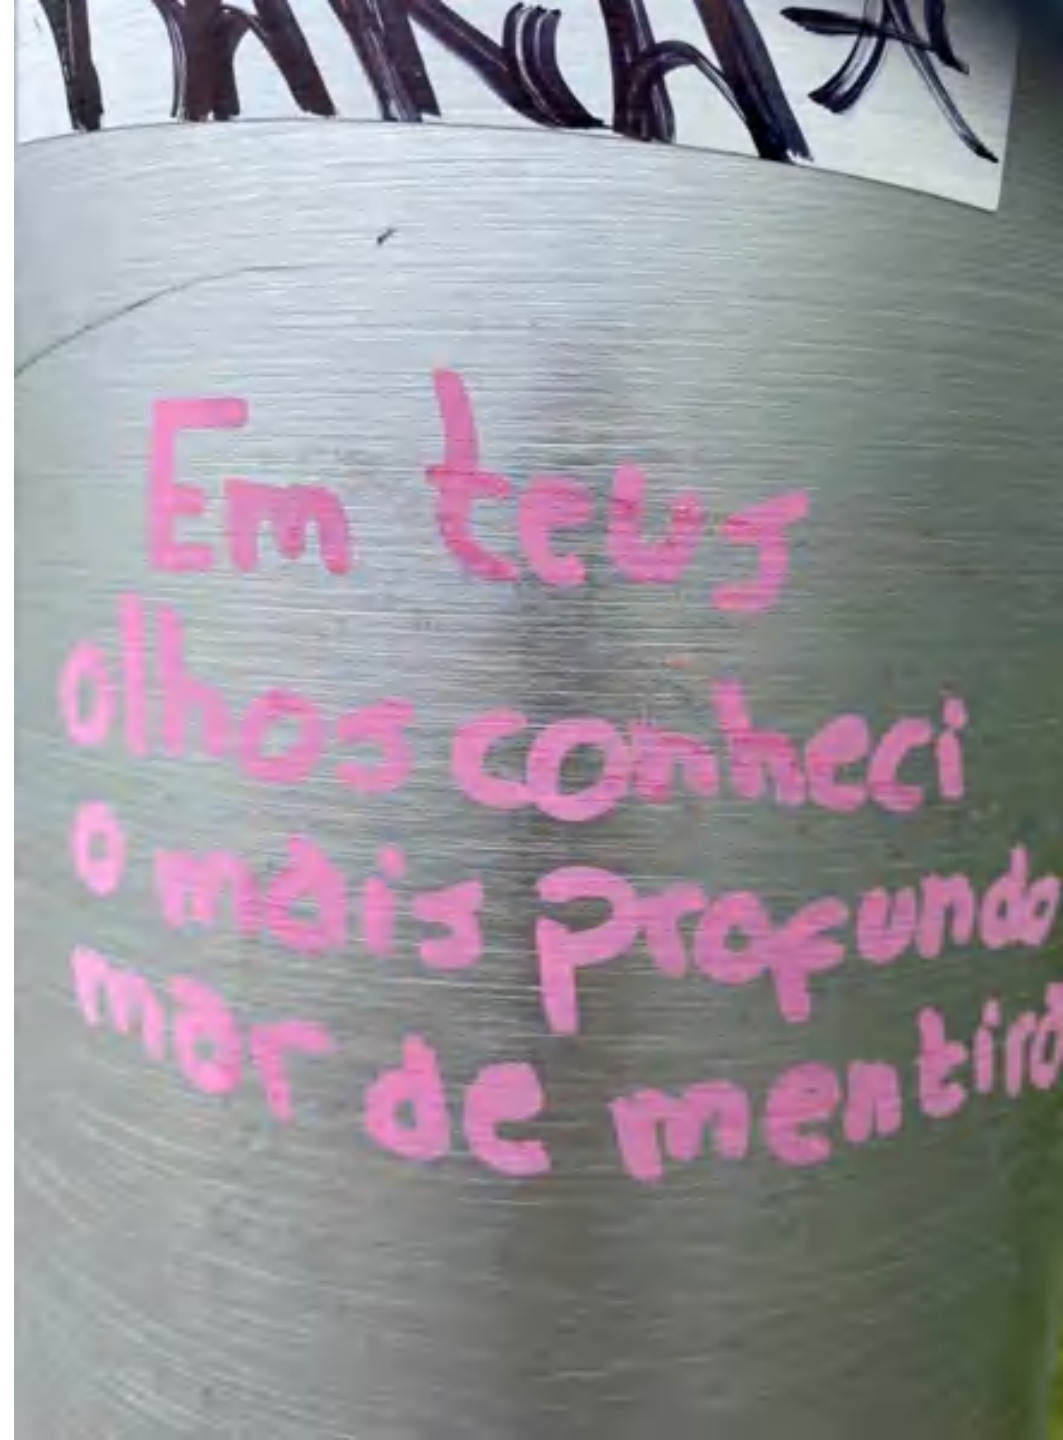 Em teus
olhos conheci
o mais profundo
mar de mentira